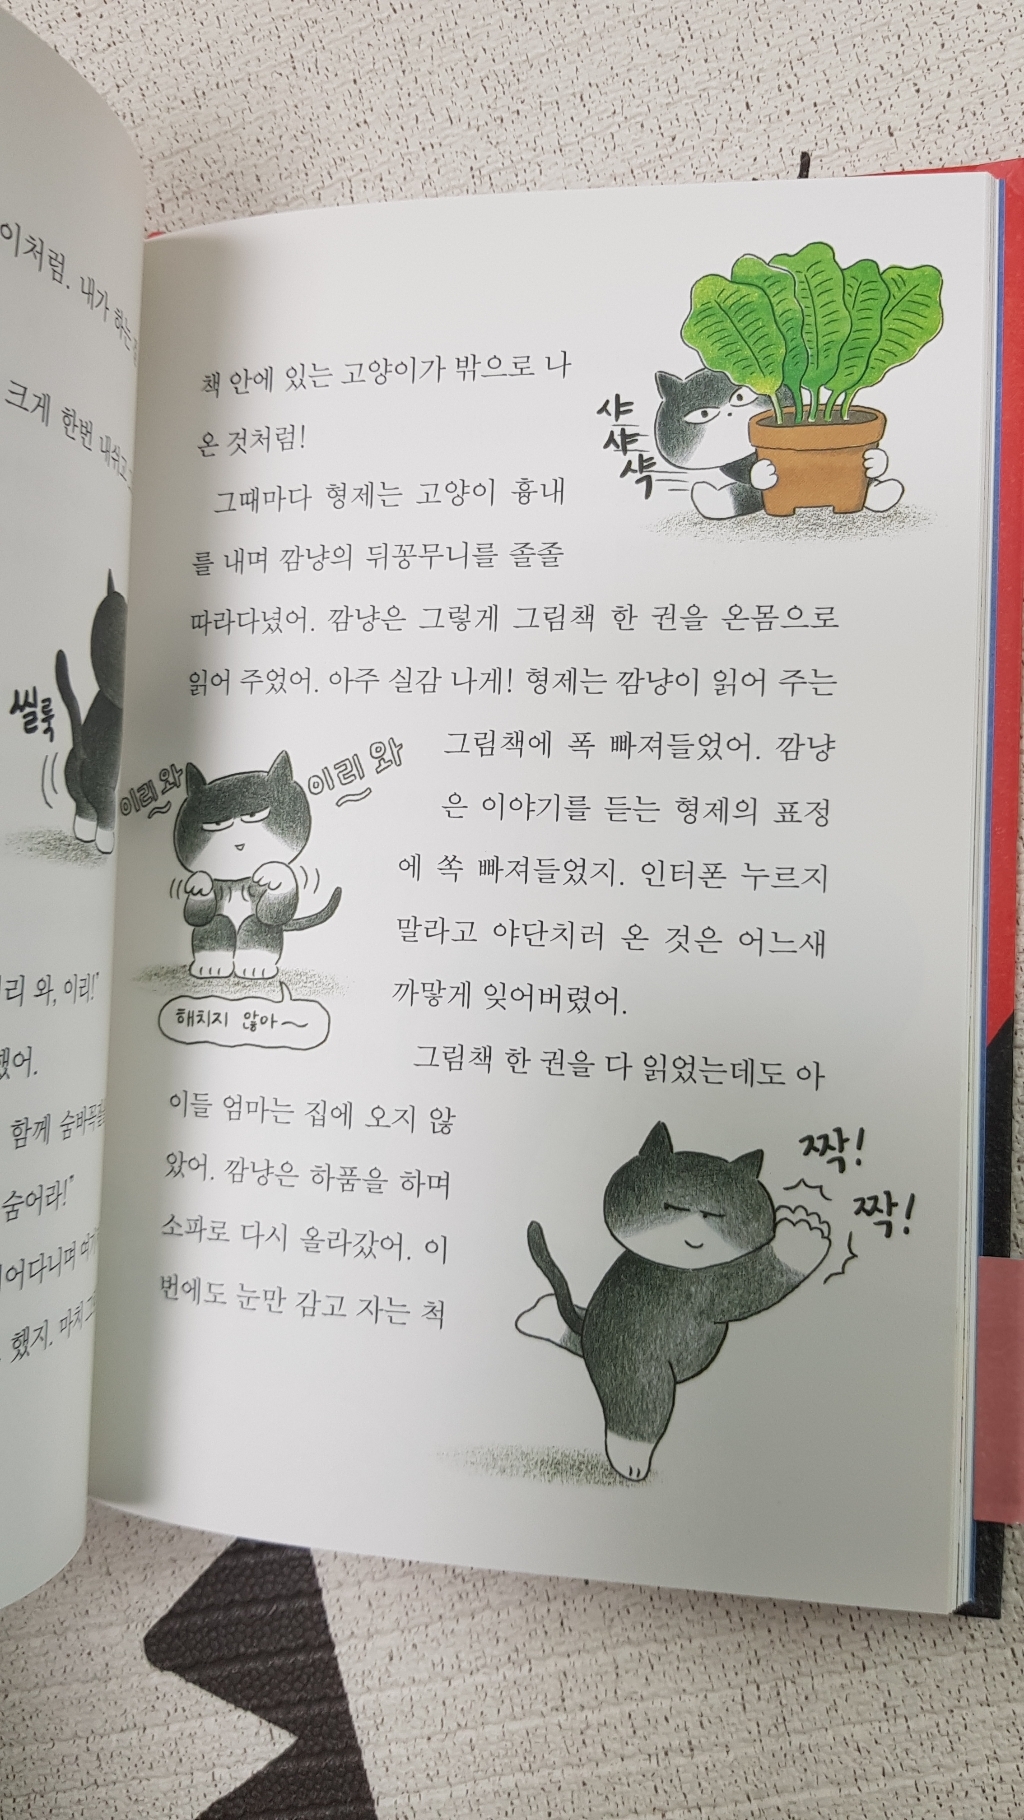 이처럼. 내가 하는
크게 한번 내쉬고
씰룩
리 와, 이리!"
했어.
함께
숨어라!"
어다니며
했지. 마치
책 안에 있는 고양이가 밖으로 나
온 것처럼!
샤
샤
샥
그때마다 형제는 고양이 흉내
를 내며 깜냥의 뒤꽁무니를 졸졸
따라다녔어. 깜냥은 그렇게 그림책 한 권을 온몸으로
읽어 주었어. 아주 실감 나게! 형제는 깜냥이 읽어 주는
그림책에 폭 빠져들었어. 깜냥
은 이야기를 듣는 형제의 표정
에 쏙 빠져들었지. 인터폰 누르지
말라고 야단치러 온 것은 어느새
까맣게 잊어버렸어.
이리 와
이리 와
해치지 않아~
그림책 한 권을 다 읽었는데도 아
이들 엄마는 집에 오지 않
았어. 깜냥은 하품을 하며
소파로 다시 올라갔어. 이
번에도 눈만 감고 자는 척
짝!
짝!